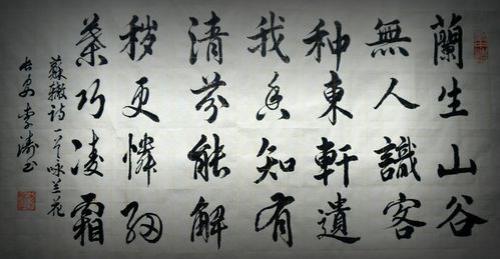 蘭生山谷
無人識客
种東軒遺
我香知有
清芬能解
穢更憐細
葉巧凌霜
蘇轍詩一首咏兰花
长安李濤书